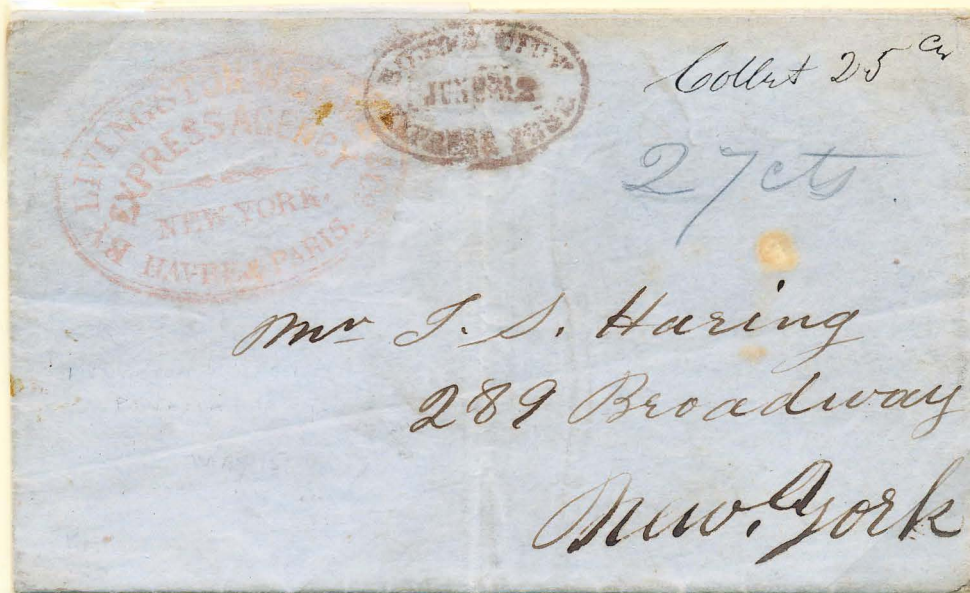 BY LIVINGSTON
EXPRESS AGENCY
NEW YORK,
HAVRE & PARIS.
CITY
JUN
Collect 25 Cts
27 cts
Mr J. S. Haring
289 Broadway
New. York